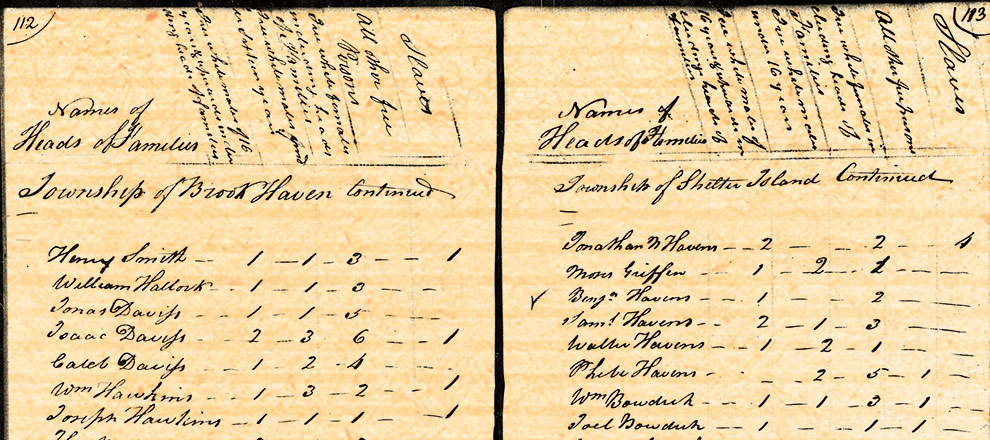 112
Free white males of 16
years & upwards inclu
ding heads of families
Free white males
under sixteen years
Free white females
including heads
of Families
All other free
Persons
Slaves
Names of
Heads of Families
Township of Brook Haven Continued
Henry Smith -- 1 - 1 - 3 - - 1
William Hallock - 1 - 1 - 3 - -
Jonas Daviss - 1 - 1 - 5 - -
Isaac Daviss - 2 - 3 - 6 - - 1
Caleb Daviss - 1 - 2 - 4 - -
Wm Hawkins - 1 - 3 - 2 - - 1
Joseph Hawkins - 1 - 1 - 1 - - 1
113
Free white males of
16 years & upwards in
cluding heads of
Families
Free white males
under 16 years
Free white females in
cluding heads of
Families
All other free persons
Slaves
Names of
Heads of Families
Township of Shelter Island Continued
Jonathan N Havens -- 2 - - 2 - - 4
Moses Griffen - - 1 - 2 - 1 - -
Benjn Havens - - 1 - - 2 - -
Saml Havens - - 2 - 1 - 3 - -
Walter Havens - 1 - 2 - 1 - -
Phebe Havens - - 2 - 5 - 1 -
Wm Bowditch - 1 - 1 - 3 - 1
Joel Bowditch - 1 - - 1 - 1 -